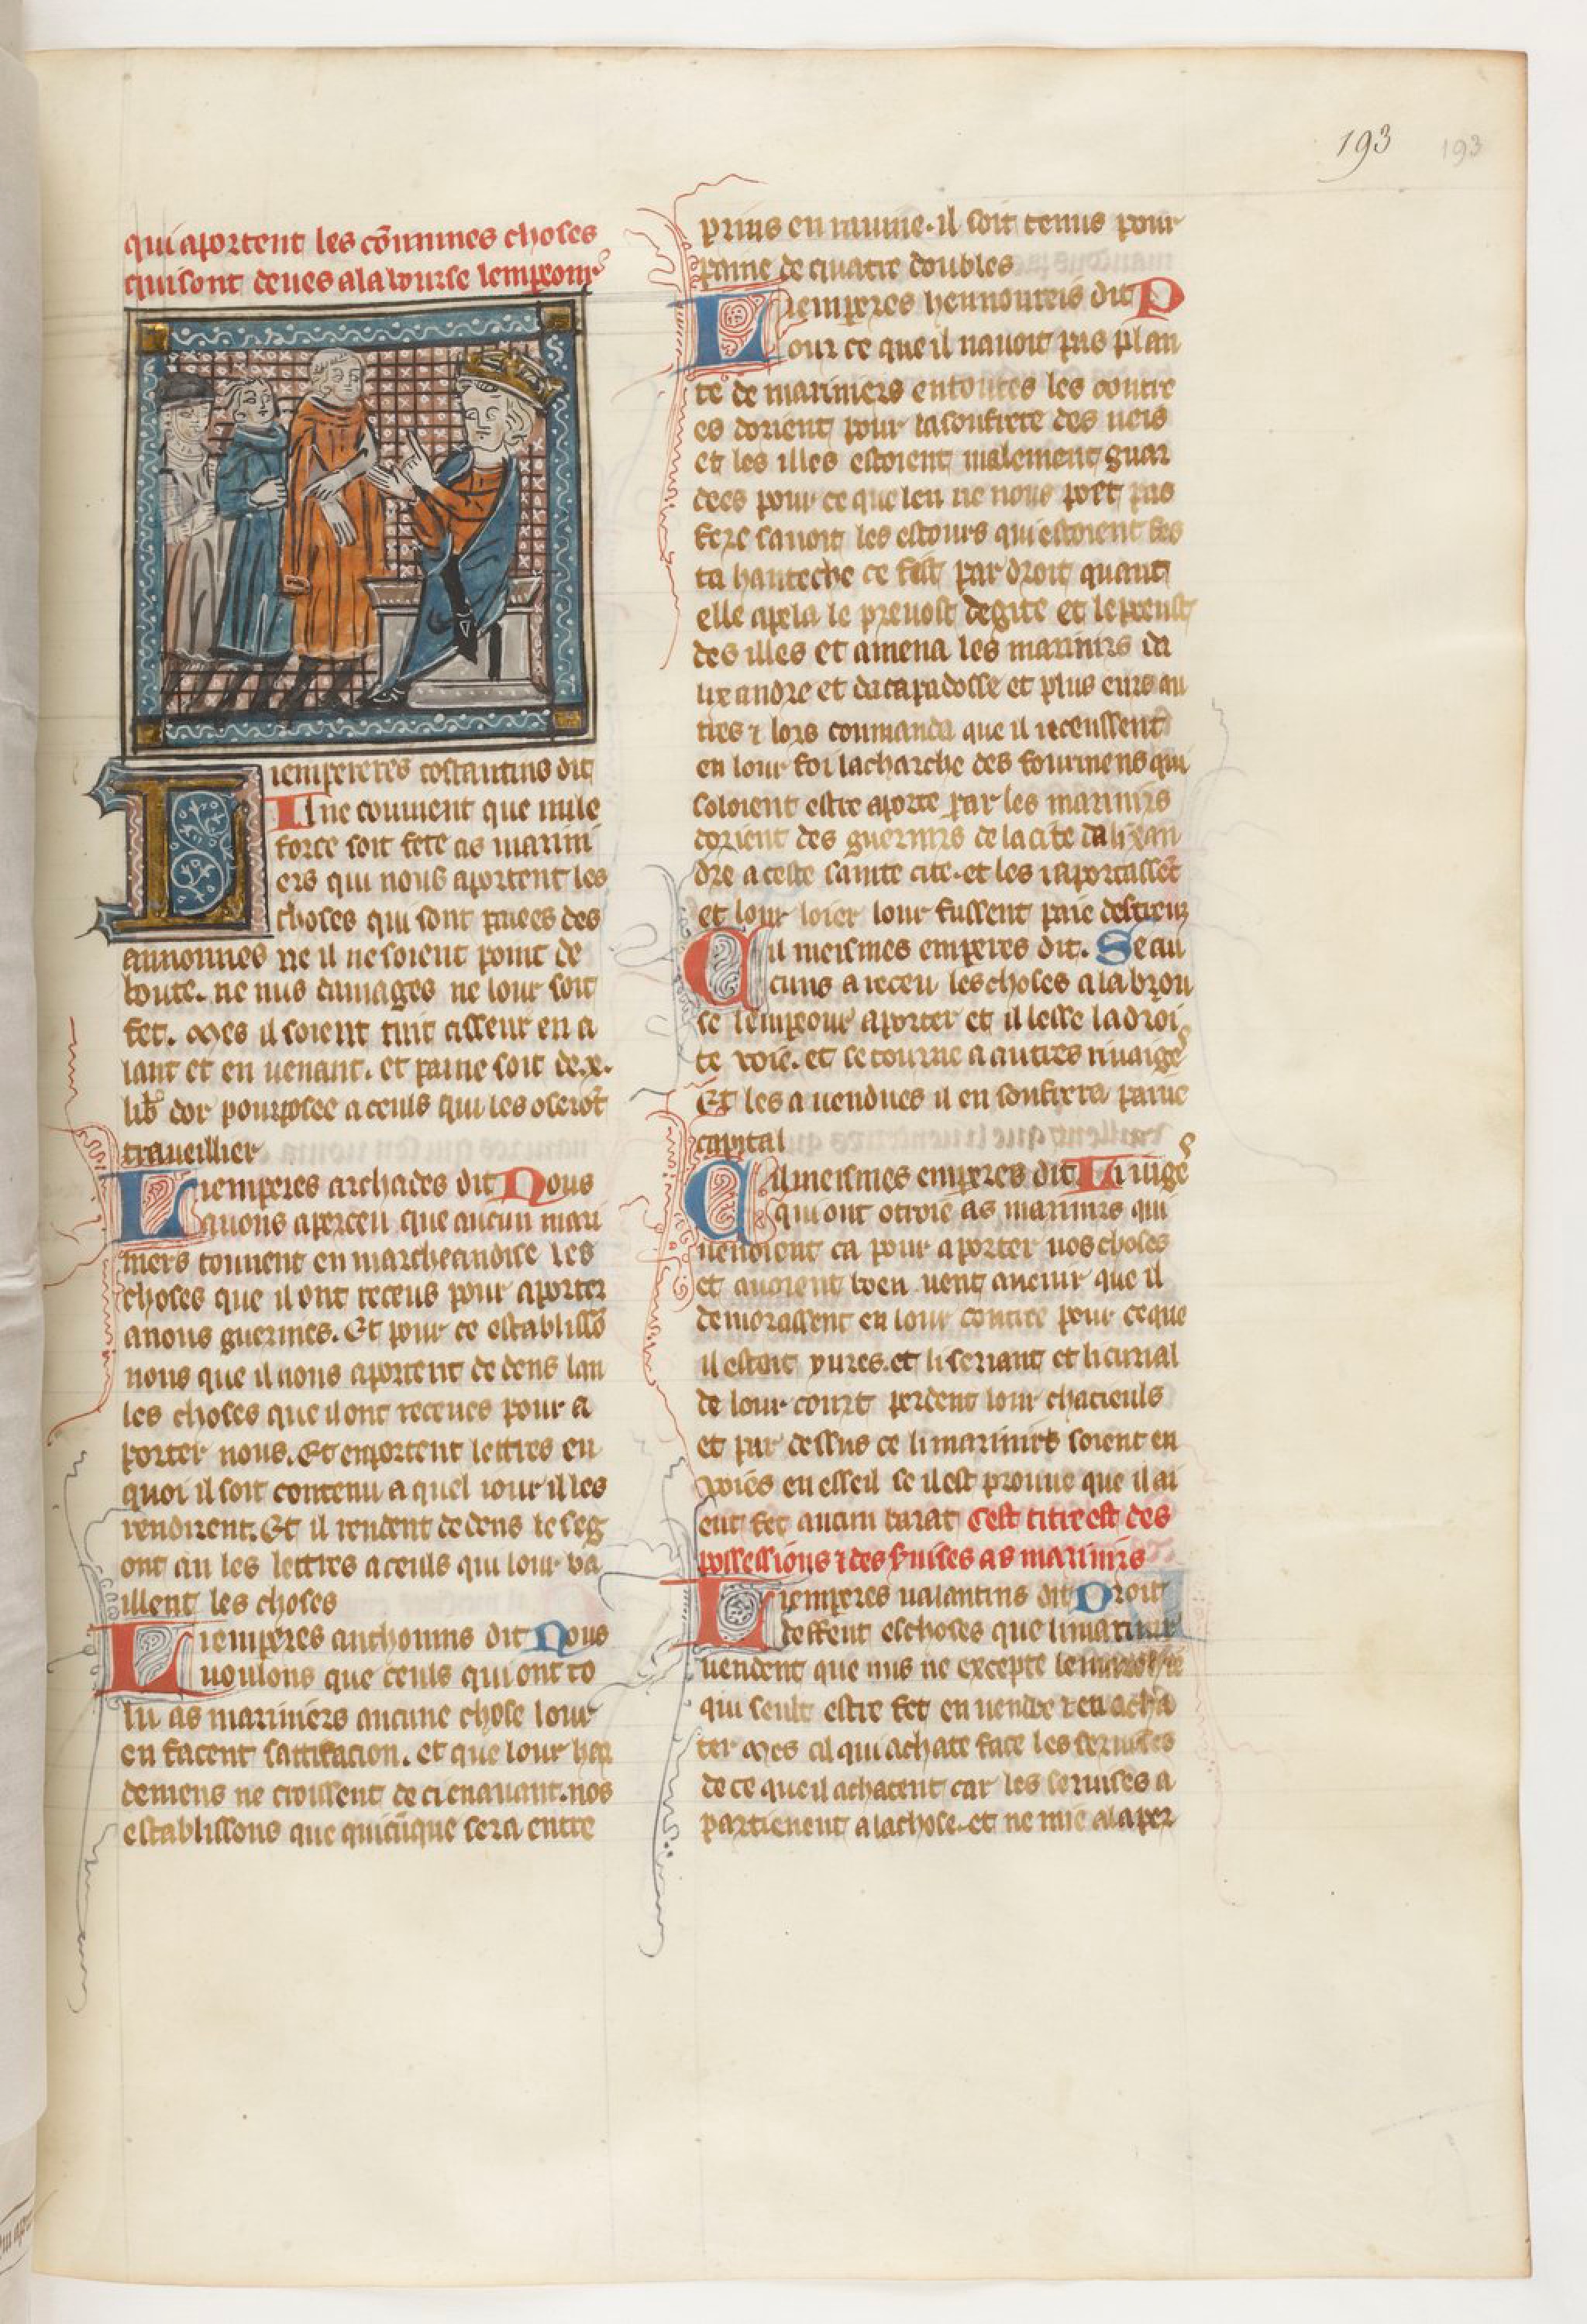 193 193
qui aportent les cōmunes choses
qui sont deues a la bourse lempeour
Li emperetes costantins dit
Il ne couuient que nule
force soit fete as marini
ers qui nous aportent les
choses qui sont paiees des
annonnes ne il ne soient point de
boute. ne nus damages ne lour soit
fet. Mes il soient tuit asseur en a
lant et en uenant. et paine soit de .x.
lib' dor pourposee a ceuls qui les oserōt
traueillier
Li emperes archades dit Nous
auons aperceu que aucun mari
niers tournent en marcheandise les
choses que il ont receus pour aporter
a nous guermes. Et pour ce establissō
nous que il nous aportent de dens lan
les choses que il ont receues pour a
porter nous. Et enportent lettres en
quoi il soit contenu a quel iour il les
rendirent. Et il rendent de dens le seg
ont an les lettres a ceuls qui lour ba
illent les choses
Li emperes anthonins dit Nous
uoulons que ceuls qui ont to
lu as mariniers aucune chose lour
en facent satifacion. et que lour har
demens ne croissent de ci en auant. nos
establissons que quicūque sera entre
prius en rauine. il soit tenus pour
paine de quatre doubles
Li emperes hennoureis dit P
our ce que il nauoit pas plan
te de mariniers en toutes les contre
es dorient pour la soufrete des neis
et les illes estoient malement guar
dees pour ce que len ne nous poet pas
fere sauoir les estours qui estoient fes
ta hautesce ce fist par droit quant
elle apela le preuost degite et le preust
des illes et amena les marinirs da
lixandre et da capadosse et plus eurs au
tres ⁊ lors coumanda que il receussent
en lour foi la charche des fourmens qui
soloient estre aporte par les marinirs
dorient des guerniers de la cite dalixan
dre a ceste sainte cite. et les raportassēt
et lour loier lour fussent paie desireur
Cil meismes emperes dit. Se au
cuns a receu les choses a la brou
se lempeour aporter et il lesse la droi
te voie. et se tourne a autres riuaiges
Et les a uendues il en souferra paine
capital
Cil meismes emperes dit Li iuge
qui ont otroie as marinirs qui
uenoient ca pour aporter nos choses
et auoient boen uent auenir que il
demorassent en lour contree pour ce que
il estoit yures. et li seriant et li curial
de lour court perdent lour chacieuls
et par dessus ce li marinirs soient en
voies en esseil se il est prouue que il ai
ent fet aucun barat Cest titre est des
possessions ⁊ des suises as marinirs
Li emperes ualantins dit Droit
deffent es choses que li marinir
uendent que nus ne excepte le
qui seult estre fet en uendre ⁊ en acha
ter Mes cil qui achate face les seruises
de ce que il achatent car les seruises a
partienent a la chose. et ne mie a la per